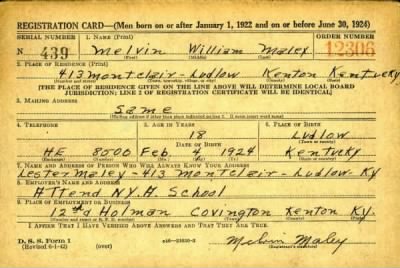 REGISTRATION CARD—(Men born on or after January 1, 1922 and on or before June 30, 1924)
SERIAL NUMBER 1. NAME (Print) ORDER NUMBER
N 439 Melvin William Maley 12306
(First) (Middle) (Last)
2. PLACE OF RESIDENCE (Print)
413 Montclair - Ludlow Kenton Kentucky
(Number and street) (Town, township, village, or city) (County) (State)
[THE PLACE OF RESIDENCE GIVEN ON THE LINE ABOVE WILL DETERMINE LOCAL BOARD
JURISDICTION; LINE 2 OF REGISTRATION CERTIFICATE WILL BE IDENTICAL]
3. MAILING ADDRESS
Same
[Mailing address if other than place indicated on line 2. If same insert word same]
4. TELEPHONE 5. AGE IN YEARS 6. PLACE OF BIRTH
18 Ludlow
DATE OF BIRTH (Town or county)
HE 8500 Feb. 4 1924 Kentucky
(Exchange) (Number) (Mo.) (Day) (Yr.) (State or country)
7. NAME AND ADDRESS OF PERSON WHO WILL ALWAYS KNOW YOUR ADDRESS
Lester Maley - 413 Montclair - Ludlow - Ky
8. EMPLOYER'S NAME AND ADDRESS
Attend N.Y.A. School
9. PLACE OF EMPLOYMENT OR BUSINESS
12th Holman Covington Kenton Ky.
(Number and street or R. F. D. number) (Town) (County) (State)
I AFFIRM THAT I HAVE VERIFIED ABOVE ANSWERS AND THAT THEY ARE TRUE.
D. S. S. Form 1
(Revised 6-1-42) (over) Melvin Maley
(Registrant's signature)